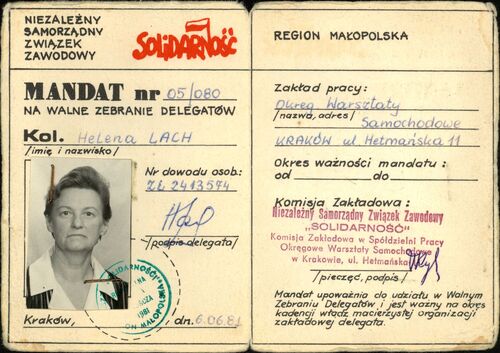 NIEZALEŻNY
SAMORZĄDNY
ZWIĄZEK
ZAWODOWY
SOLIDARNOŚĆ
MANDAT nr 05/080
NA WALNE ZEBRANIE DELEGATÓW
Kol. Helena LACH
/imię i nazwisko/
Nr dowodu osob:
ZŁ 2413574
/podpis delegata/
SOLIDARNOŚĆ
1981
Kraków, dn. 6.06.81
REGION MAŁOPOLSKA
Zakład pracy:
Okręg Warsztaty
/nazwa, adres/ Samochodowe
KRAKÓW ul. Hetmańska 11
Okres ważności mandatu:
od do
Komisja Zakładowa:
Niezależny Samorządny Związek Zawodowy
„SOLIDARNOŚĆ"
Komisja Zakładowa w Spółdzielni Pracy
Okręgowe Warsztaty Samochodowe
w Krakowie, ul. Hetmańska
/pieczęć, podpis/
Mandat upoważnia do udziału w Walnym
Zebraniu Delegatów i jest ważny na okres
kadencji władz macierzystej organizacji
zakładowej delegata.